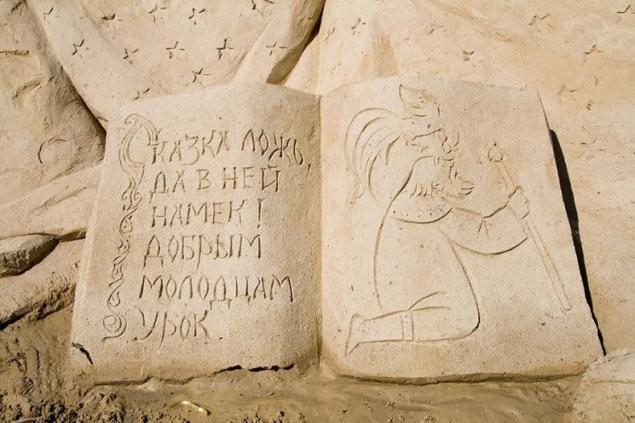 СКАЗКА ЛОЖЬ,
ДА В НЕЙ
НАМЕК!
ДОБРЫМ
МОЛОДЦАМ
УРОК